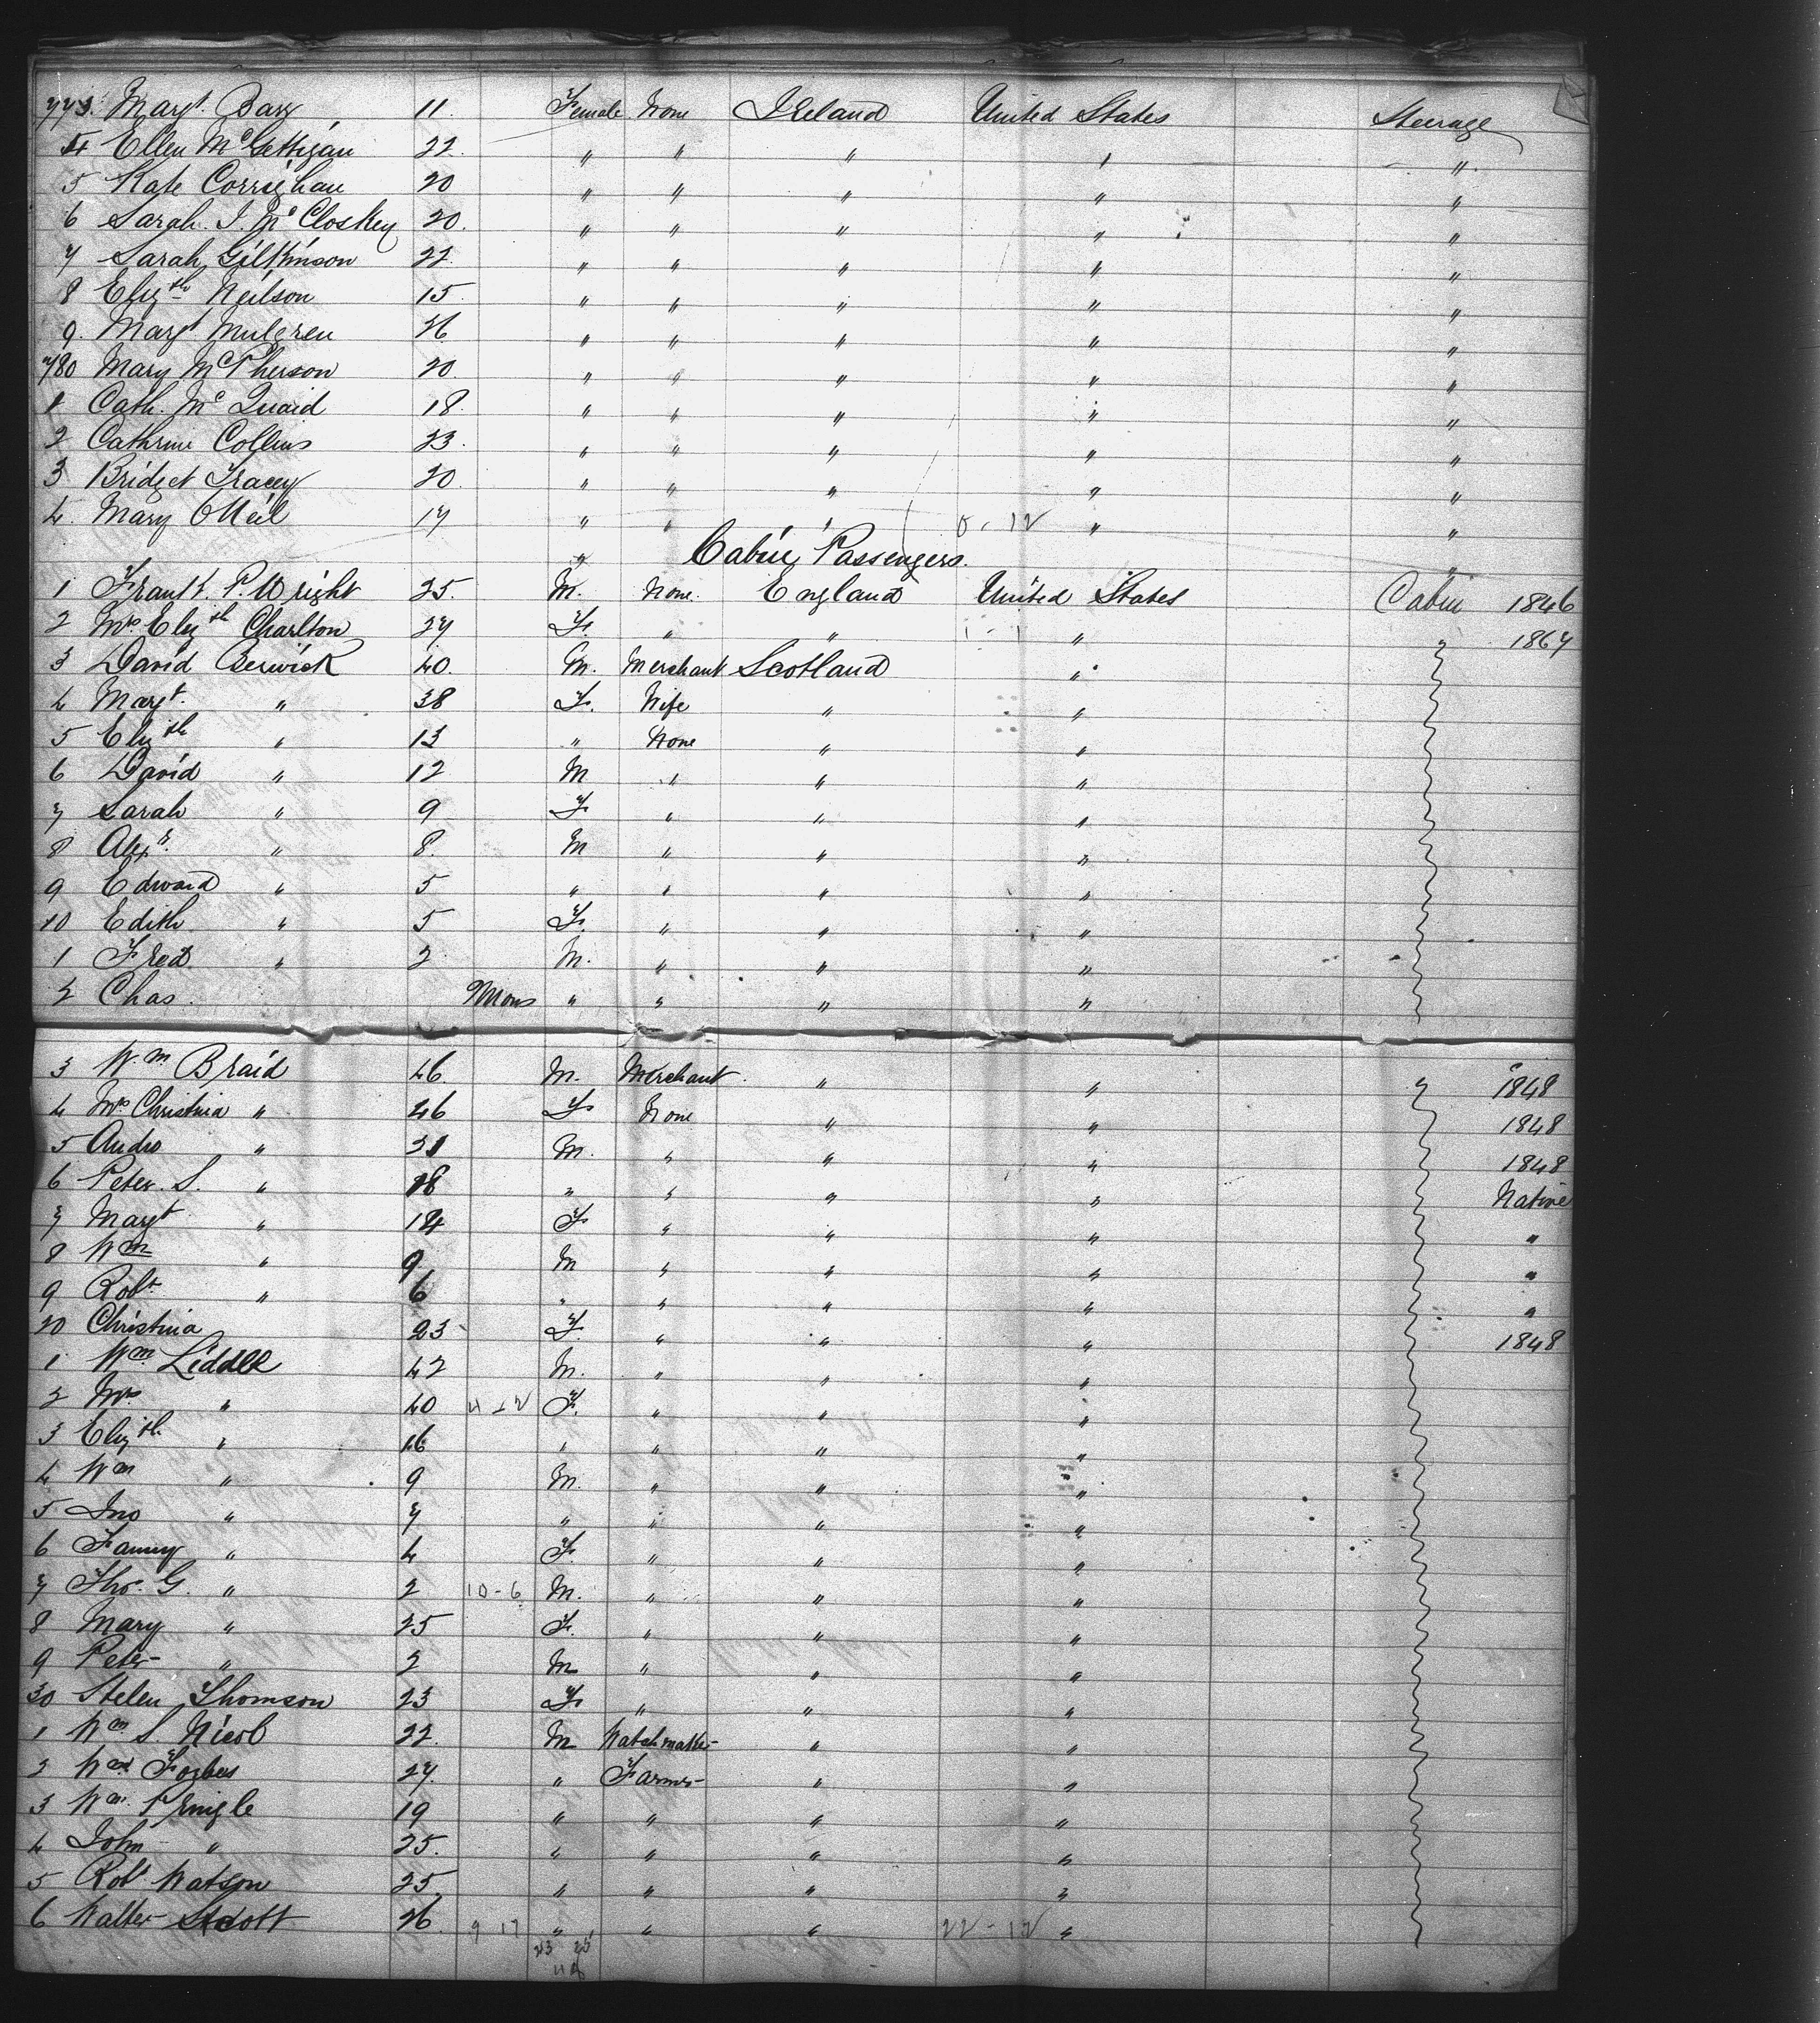 773. Margt. Barr 11. Female None Ireland United States Steerage
4 Ellen McGettigan 22 " " " " "
5 Kate Corrighan 20 " " " " "
6 Sarah J. McCloskey 20. " " " " "
7 Sarah Gilkinson 22 " " " " "
8 Elizth Neilson 15. " " " " "
9. Margt Mulgreu 26 " " " " "
780 Mary McPherson 20. " " " " "
1 Cath. McQuaid 18. " " " " "
2 Cathrine Collins 23. " " " " "
3 Bridget Tracey 20. " " " " "
4. Mary ONeil 17 " " " " "
" Cabin Passengers. "
1 Frank P. Wright 25. M. None. England United States Cabin 1846
2 Mrs Elizth Charlton 27 F. " " " " 1867
3 David Berwick 40. M. Merchant Scotland "
4 Margt. " 38 F. Wife " "
5 Elizth " 13 " None " "
6 David " 12 M " " "
7 Sarah " 9 F " " "
8 Alexr. " 8. M " " "
9 Edward " 5 " " " "
10 Edith " 5 F. " " "
1 Fred. " 2. M. " " "
2 Chas. 2 Mons " " " "
3 Wm. Braid 46. M. Merchant " " " 1848
4 Mrs Christina " 46 F None " " 1848
5 Andw " 21 M. " " " 1848
6 Peter. S. " 18 " " " " Native
7 Margt " 14 F " " " "
8 Wm " 9 M " " " "
9 Robt. " 6 " " " " "
20 Christina 23 F. " " " 1848
1 Wm. Liddle 42 M. " " "
2 Mrs " 40 F. " " "
3 Elizth. " 16 " " " "
4 Wm " 9 M. " " "
5 Jno " 7 " " " "
6 Fanny " 4 F. " " "
7 Thos. G. " 2 10-6 M. " " "
8 Mary " 25 F. " " "
9 Peter " 2 M " " "
30 Helen Thomson 23 F " " "
1 Wm. S. Nicol 22. M Watchmaker " "
2 Wm Forbes 27. " Farmer " "
3 Wm. Pringle 19 " " " "
4 John " 25. " " " "
5 Robt Watson 25 " " " "
6 Walter Scott 26 9 17 " " " 22-12 "
23 25